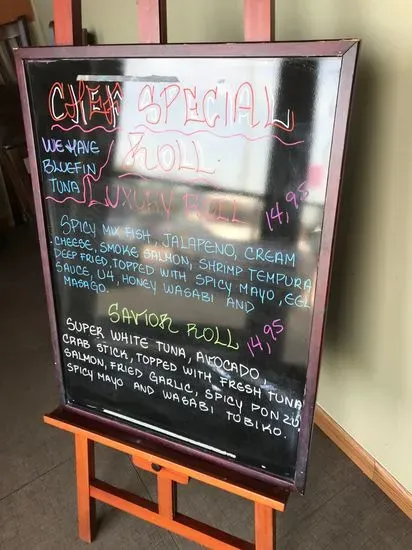 CHEF SPECIAL
ROLL
WE HAVE
BLUEFIN
TUNA
LUXURY ROLL 14,95
SPICY MIX FISH, JALAPENO, CREAM
CHEESE, SMOKE SALMON, SHRIMP TEMPURA
DEEP FRIED, TOPPED WITH SPICY MAYO, EEL
SAUCE, U4, HONEY WASABI AND
MASAGO.
SAVIOR ROLL 14,95
SUPER WHITE TUNA, AVOCADO,
CRAB STICK, TOPPED WITH FRESH TUNA
SALMON, FRIED GARLIC, SPICY PONZU,
SPICY MAYO AND WASABI TOBIKO.